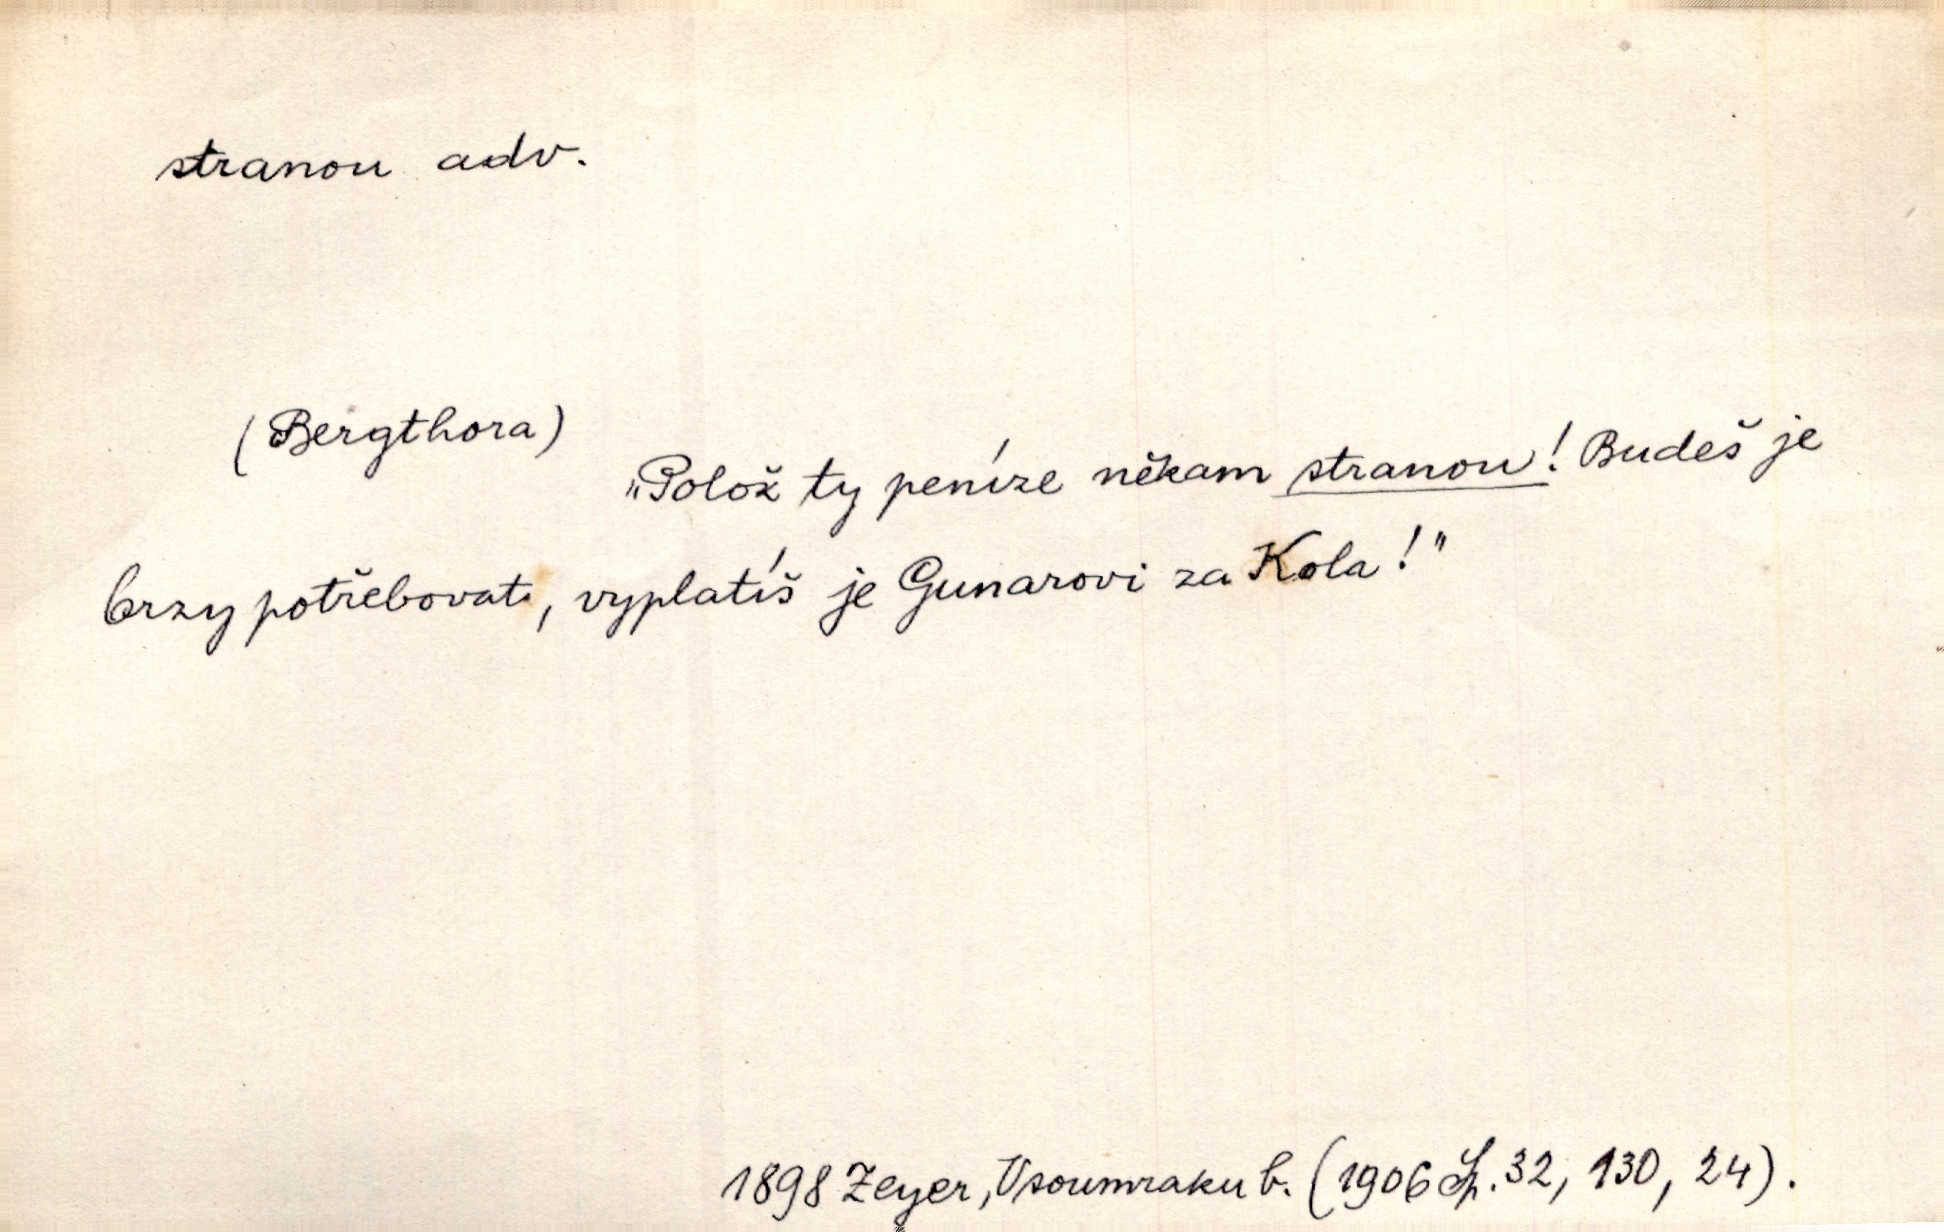 stranou adv.
(Bergthora)
„Polož ty peníze někam stranou! Budeš je
brzy potřebovati, vyplatíš je Gunarovi za Kola!"
1898 Zeyer, V soumraku b. (1906 Sp. 32, 130, 24).